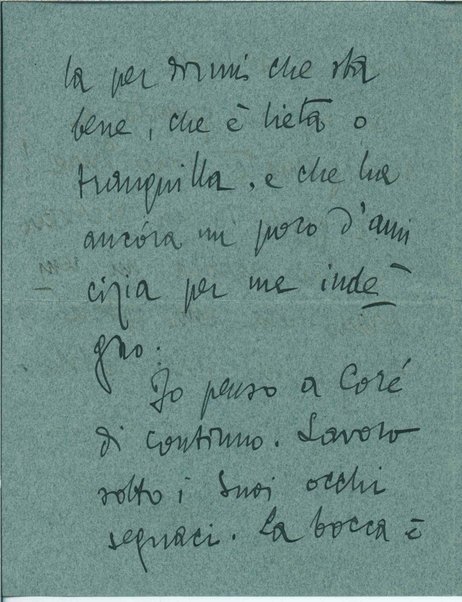 la per dirmi che sta
bene, che è lieta o
tranquilla, e che ha
ancóra un poco d'ami
cizia per me inde
gno.
Io penso a Coré
di continuo. Lavoro
sotto i Suoi occhi
seguaci. La bocca è